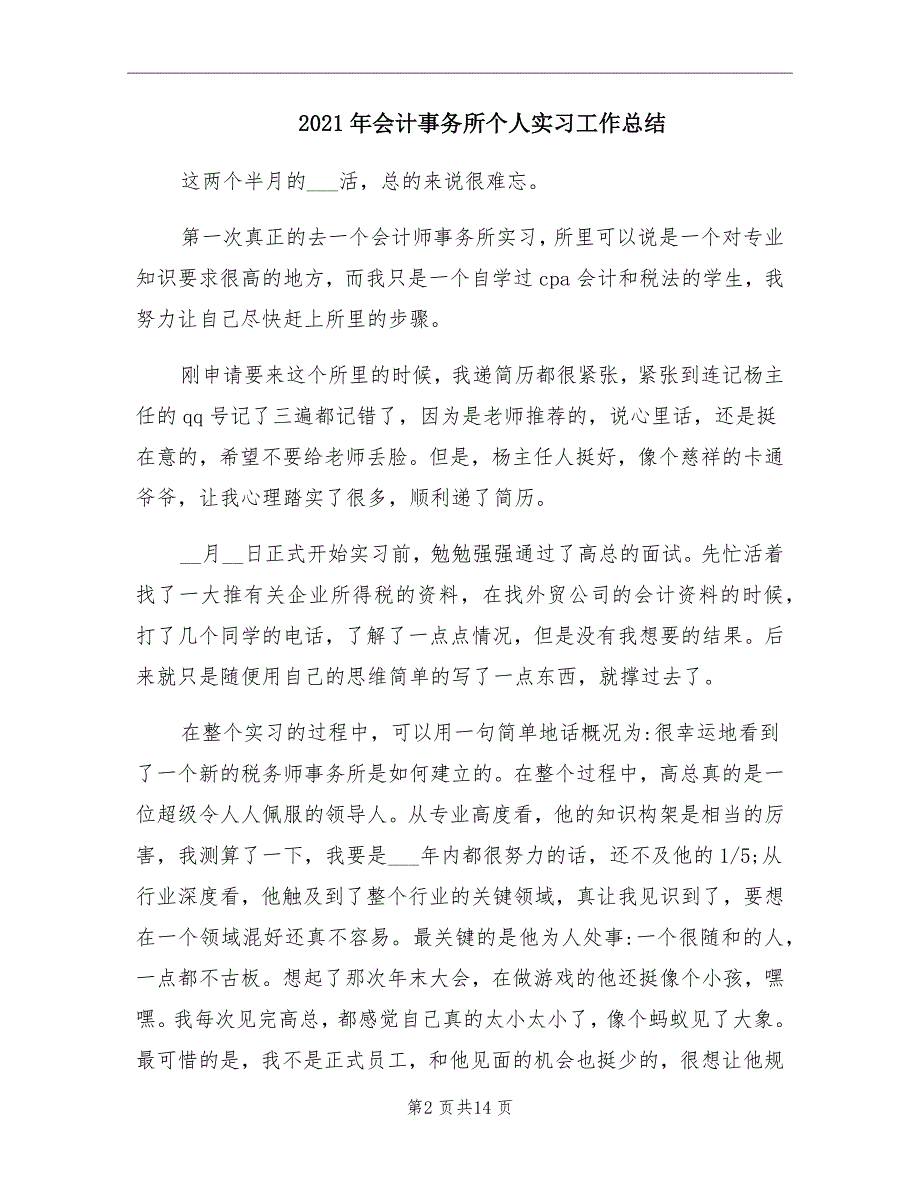 2021年会计事务所个人实习工作总结
这两个半月的___活，总的来说很难忘。
第一次真正的去一个会计师事务所实习，所里可以说是一个对专业
知识要求很高的地方，而我只是一个自学过 cpa 会计和税法的学生，我
努力让自己尽快赶上所里的步骤。
刚申请要来这个所里的时候，我递简历都很紧张，紧张到连记杨主
任的 qq 号记了三遍都记错了，因为是老师推荐的，说心里话，还是挺
在意的，希望不要给老师丢脸。但是，杨主任人挺好，像个慈祥的卡通
爷爷，让我心理踏实了很多，顺利递了简历。
__月__日正式开始实习前，勉勉强强通过了高总的面试。先忙活着
找了一大推有关企业所得税的资料，在找外贸公司的会计资料的时候，
打了几个同学的电话，了解了一点点情况，但是没有我想要的结果。后
来就只是随便用自己的思维简单的写了一点东西，就撑过去了。
在整个实习的过程中，可以用一句简单地话概况为:很幸运地看到
了一个新的税务师事务所是如何建立的。在整个过程中，高总真的是一
位超级令人人佩服的领导人。从专业高度看，他的知识构架是相当的厉
害，我测算了一下，我要是___年内都很努力的话，还不及他的 1/5;从
行业深度看，他触及到了整个行业的关键领域，真让我见识到了，要想
在一个领域混好还真不容易。最关键的是他为人处事:一个很随和的人，
一点都不古板。想起了那次年末大会，在做游戏的他还挺像个小孩，嘿
嘿。我每次见完高总，都感觉自己真的太小太小了，像个蚂蚁见了大象。
最可惜的是，我不是正式员工，和他见面的机会也挺少的，很想让他规
第2 页共14 页